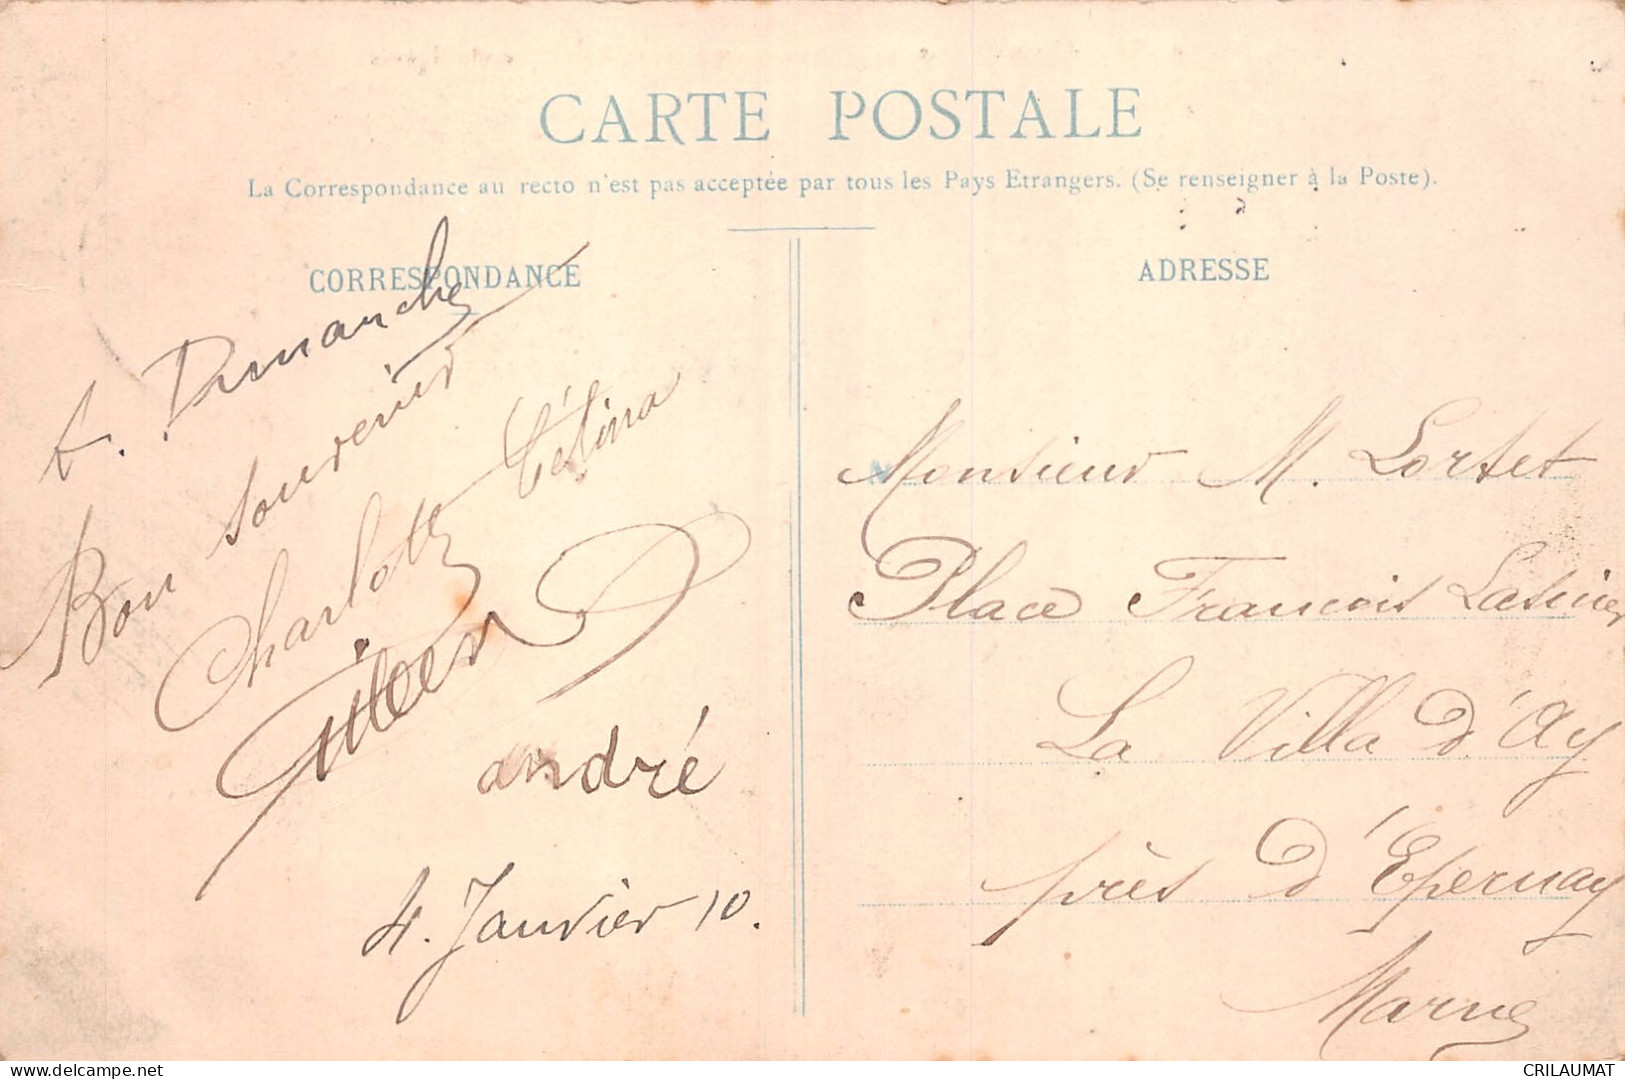 CARTE POSTALE
La Correspondance au recto n'est pas acceptée par tous les Pays Etrangers. (Se renseigner à la Poste).
CORRESPONDANCE
ADRESSE
Dimanche
Bon souvenir
Charlotte Célina
andré
4. Janvier 10.
Monsieur M. Lortet
Place François
La Villa d'Ay
près d'Épernay
Marne
CRILAUMAT